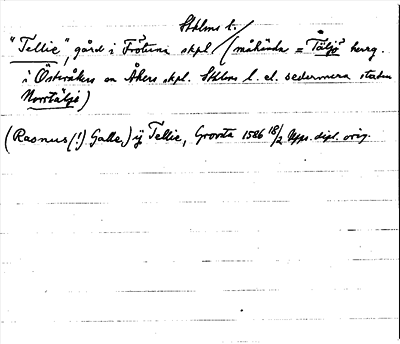 Sthlms l.
"Tellie", gård i Frötuna skpl (måhända = Täljö herrg.
i Österåkers sn Åkers skpl. Sthlms l. el. sedermera staden
Norrtälje)
(Rasmus(!) Galle,) ij Tellie, Groosta 1586 18/2 Upps. dipl. orig.